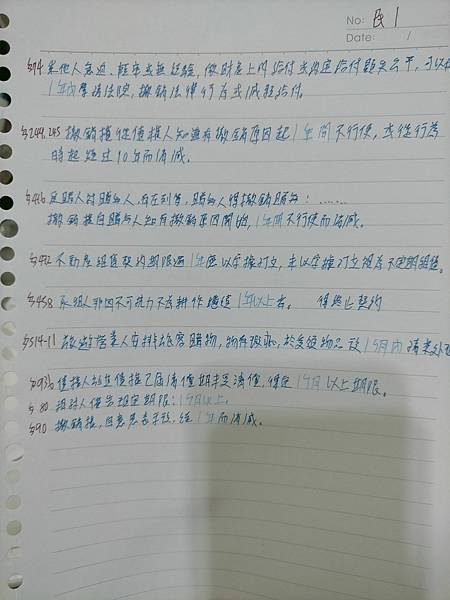 No: 民1
Date: /
§74 乘他人急迫、輕率或無經驗，做財產上的給付或約定給付顯失公平，可以在
1年內聲請法院，撤銷法律行為或減輕給付。
§244.245 撤銷權從債權人知道有撤銷原因起1年間不行使，或從行為
時起超過10年而消滅。
§416 受贈人對贈與人，有左列等，贈與人得撤銷贈與：……
撤銷權自贈與人知有撤銷原因開始，1年間不行使而消滅。
§422 不動產租賃契約期限逾1年應以字據訂立，未以字據訂立視為不定期租賃。
§458 承租人非因不可抗力不為耕作繼續1年以上者。 得終止契約
§514-11 旅遊營業人安排旅客購物，物有瑕疵，於受領物品後1個月內請求處理
§936 債權人 清償期未受清償，得定1個月以上期限。
§80 相對人催告規定期限：1個月以上。
§90 撤銷權，自意思表示後，經1年而消滅。